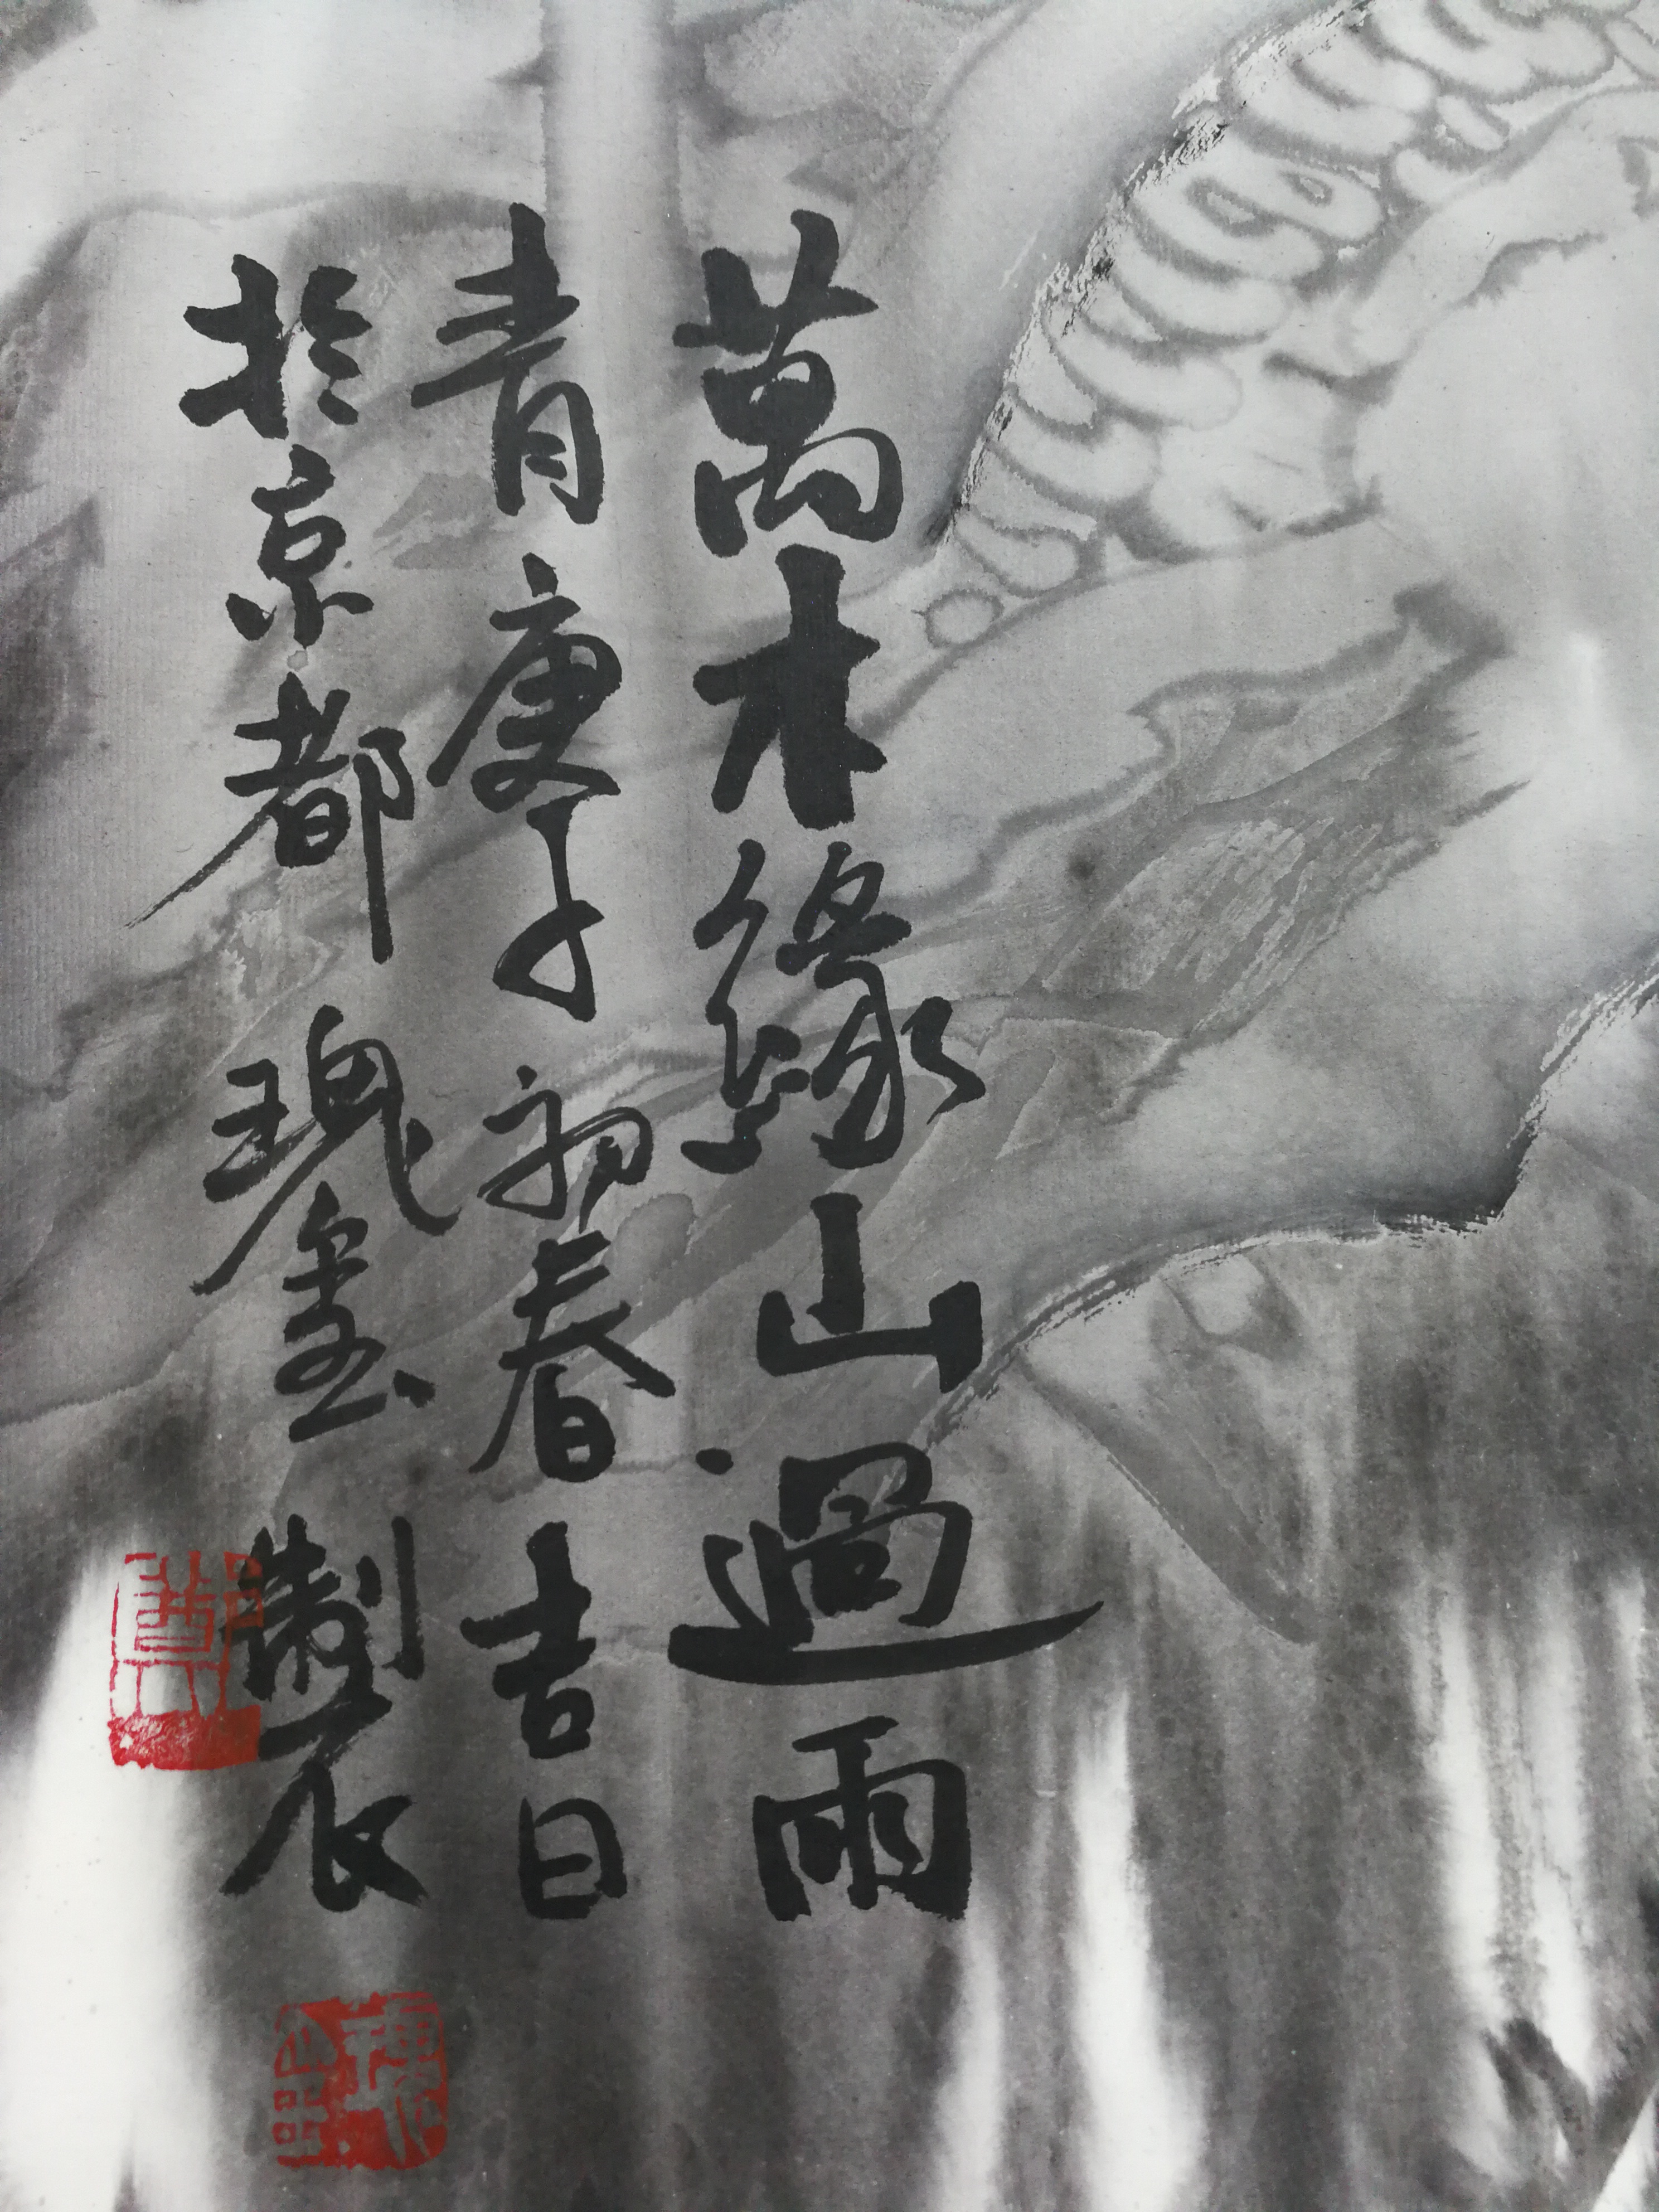 萬木緣山過雨
青庚子初春吉日
於京都瑰玺製